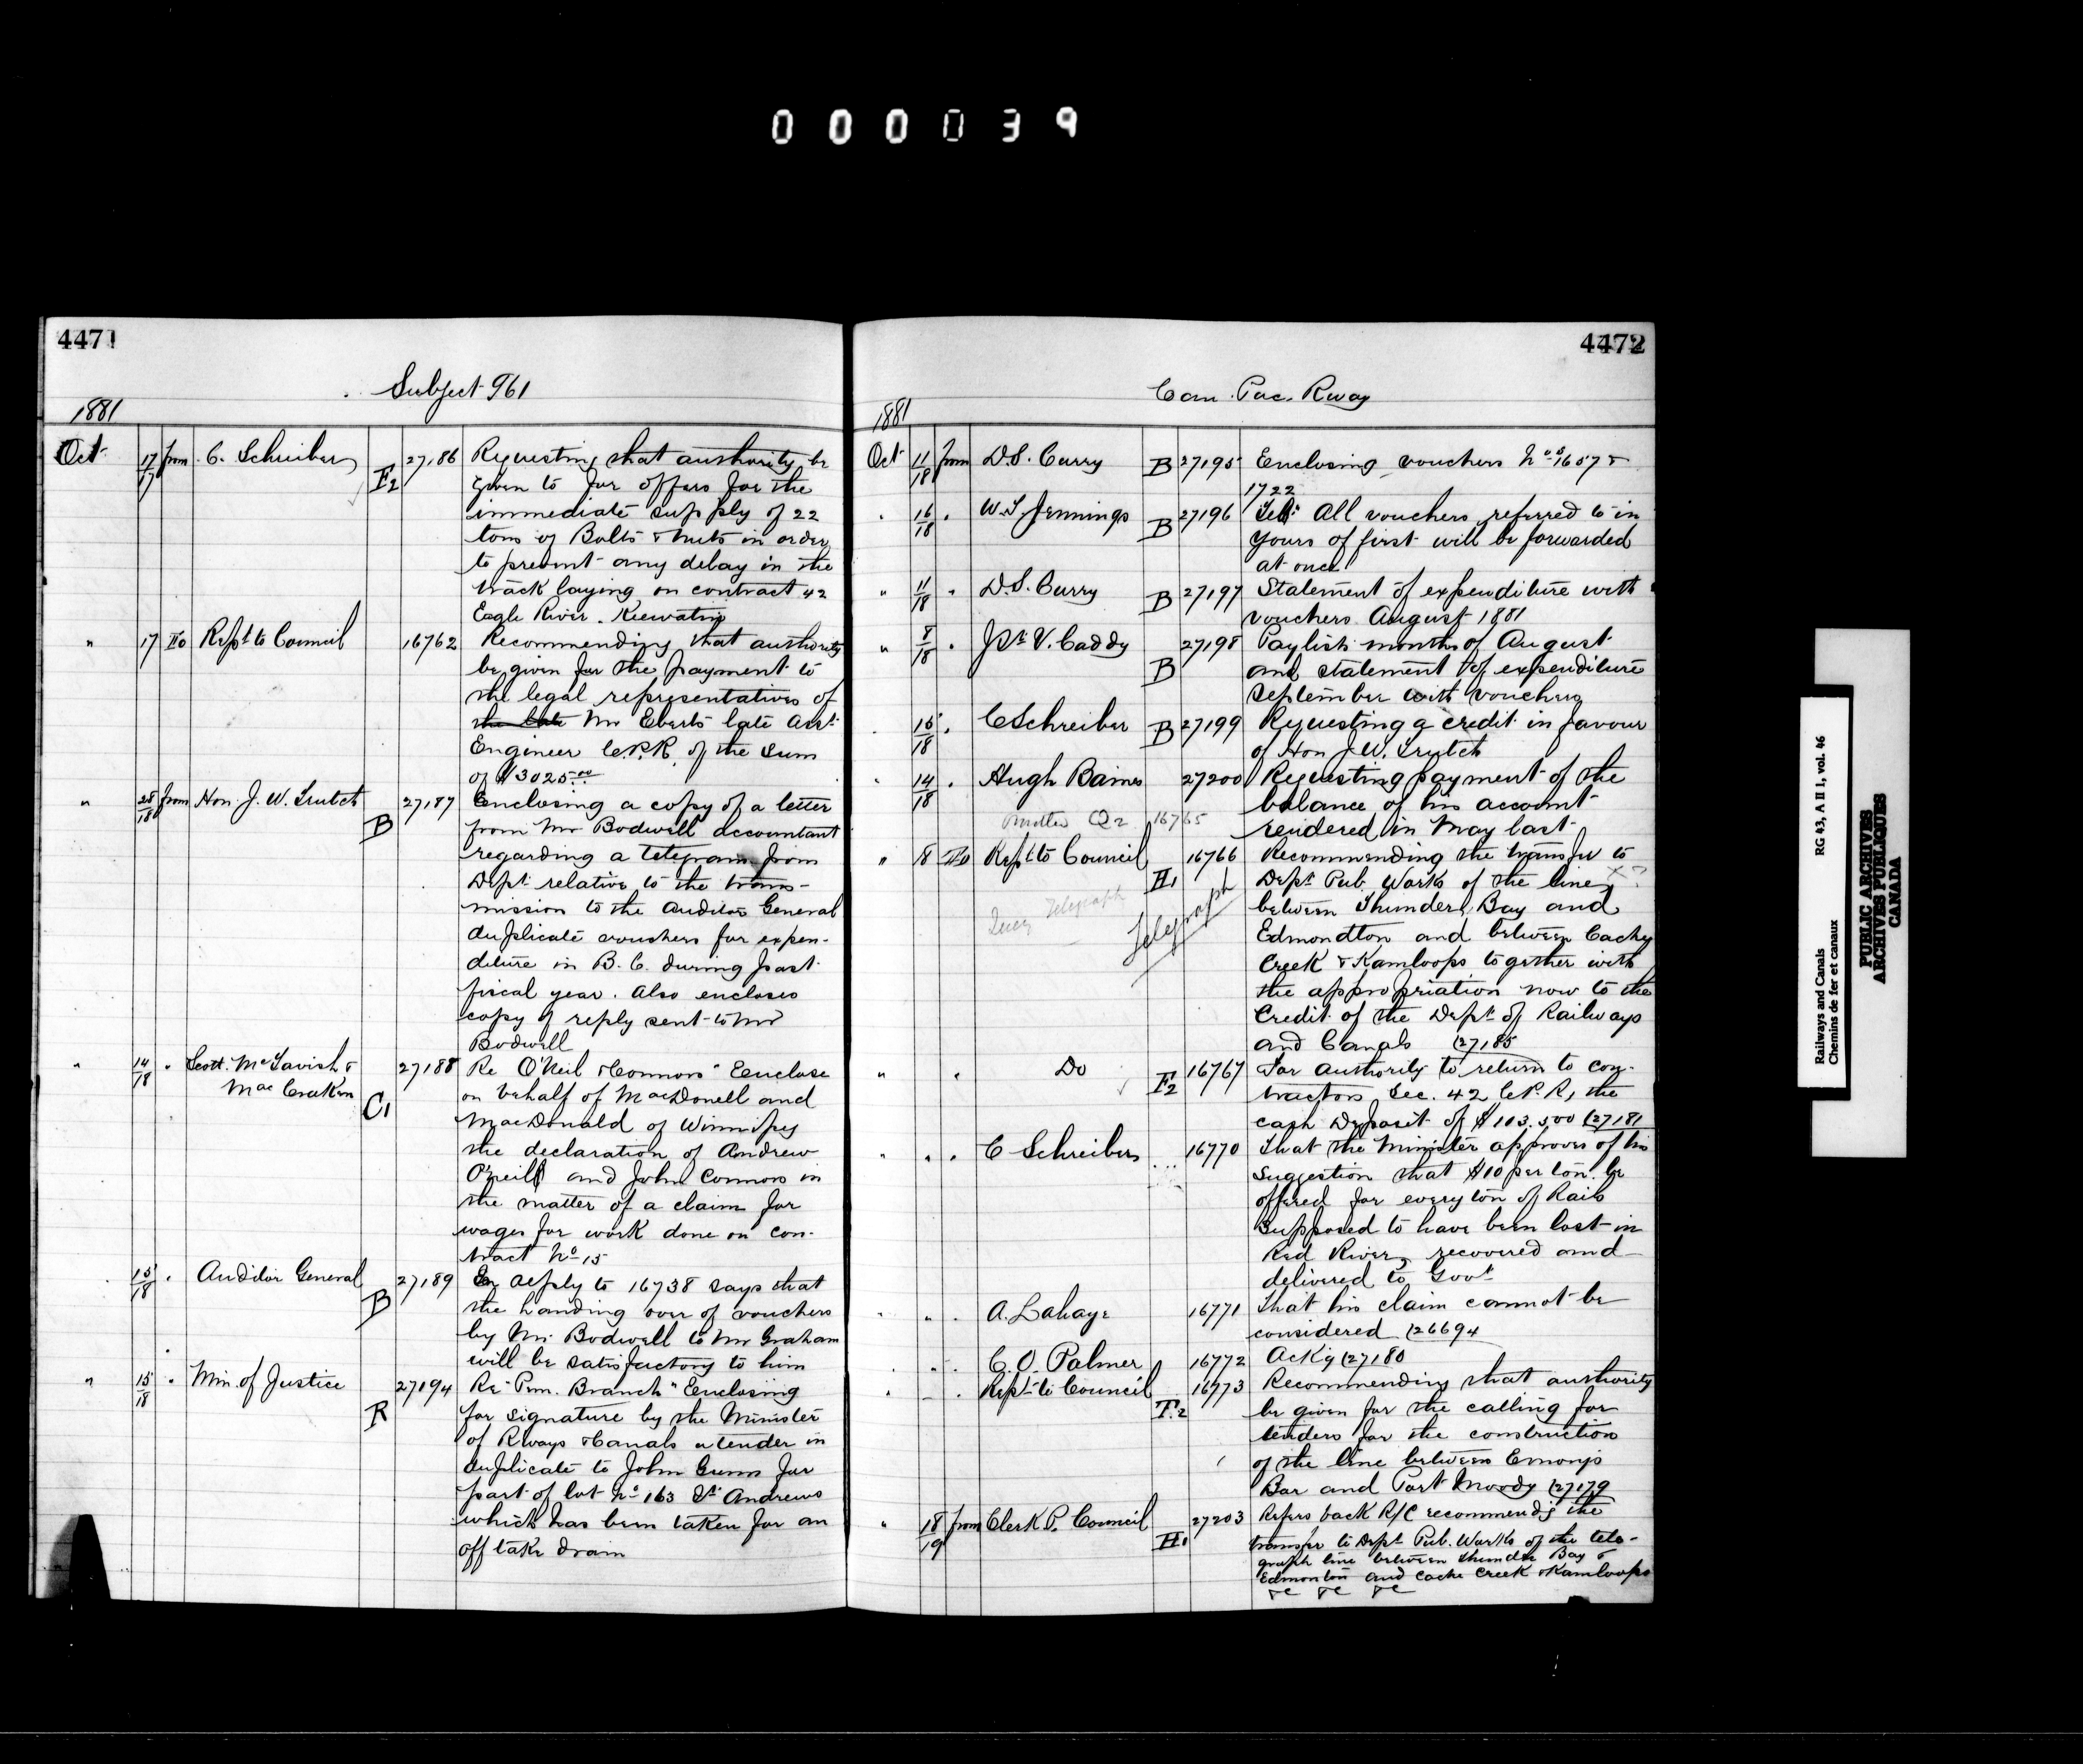 000039
4471
Subject 961
1881
Oct 17/17 from C. Schreiber F2 27186 Requesting that authority be
given to for offers for the
immediate supply of 22
tons of Bolts & Nuts in order
to prevent any delay in the
track laying on contract 42
Eagle River. Keewatin
" 17 To Rept to Council 16762 Recommending that authority
be given for the payment to
the legal representatives of
the late Mr Eberts late Asst
Engineer C.P.R. of the sum
of $3025.00
" 28/18 from Hon. J. W. Trutch B 27187 Enclosing a copy of a letter
from Mr Bodwell accountant
regarding a telegram from
Dept relative to the trans-
mission to the Auditor General
duplicate vouchers for expen-
diture in B.C. during past
fiscal year. Also encloses
copy of reply sent to Mr
Bodwell
" 14/18 " Scott. McTavish & 27188 Re O'Neil & Connors" Enclose
Mac Craken C1 on behalf of MacDonell and
MacDonald of Winnipeg
the declaration of Andrew
O'neill and John Connors in
the matter of a claim for
wages for work done on con-
tract No 15
15/18 " Auditor General B 27189 In reply to 16738 says that
the handing over of vouchers
by Mr. Bodwell to Mr Graham
will be satisfactory to him
" 15/18 " Min. of Justice R 27194 Re "Pem. Branch" Enclosing
for signature by the Minister
of Rways & Canals a tender in
duplicate to John Gunn for
part of lot No 163 St Andrews
which has been taken for an
off take drain
4472
Can. Pac. Rway
1881
Oct 11/18 from D.S. Curry B 27195 Enclosing vouchers Nos 1657 &
1722
" 16/18 " W.T. Jennings B 27196 Tel: All vouchers referred to in
yours of first will be forwarded
at once
" 11/18 " D.S. Curry B 27197 Statement of expenditure with
vouchers August 1881
" 8/18 " Jno V. Caddy B 27198 Paylist months of August
and statement of expenditure
September with vouchers
" 15/18 " C Schreiber B 27199 Requesting a credit in favour
of Hon J.W. Trutch
" 14/18 " Hugh Baines 27200 Requesting payment of the
balance of his account
Q2 16765 rendered in May last
" 18 To Rept to Council H1 16766 Recommending the transfer to
Dept Pub. Works of the line
between Thunder Bay and
Telegraph
Telegraph Edmondton and between Cache
Creek & Kamloops together with
the appropriation now to the
Credit of the Dept of Railways
and Canals (27185
" " Do F2 16767 For authority to return to con-
tractors Sec. 42 C.P.R, the
cash Deposit of $103.500 (27181
" " " C Schreiber 16770 That the Minister approves of his
suggestion that $10 per ton be
offered for every ton of Rails
supposed to have been lost in
Red River, recovered and
delivered to Govt
" " " A. Lahaye 16771 That his claim cannot be
considered (26694
" " C. O. Palmer 16772 Ackg (27180
" " Rept to Council T.2 16773 Recommending that authority
be given for the calling for
tenders for the construction
of the line between Emorys
Bar and Port Moody (27179
" 18/19 from Clerk P. Council H1 27203 Refers back R/C recommendg the
transfer to Dept Pub. Works of the tele-
graph line between Thunder Bay &
Edmonton and Cache Creek & Kamloops
&c &c &c
Railways and Canals RG 43, A II 1, vol. 46
Chemins de fer et canaux
PUBLIC ARCHIVES
ARCHIVES PUBLIQUES
CANADA